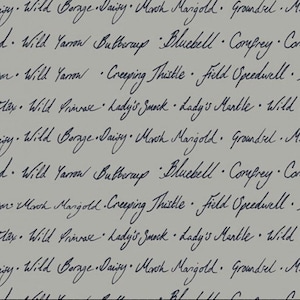 · Wild Borage · Daisy · Marsh Marigold · Groundsel ·
· Wild Yarrow Buttercup · Bluebell · Comfrey ·
· Wild Yarrow · Creeping Thistle · Field Speedwell ·
· Wild Primrose · Lady's Smock · Lady's Mantle · Wild
· Wild Borage · Daisy · Marsh Marigold · Groundsel ·
· Wild Yarrow Buttercup · Bluebell · Comfrey ·
· Marsh Marigold · Creeping Thistle · Field Speedwell ·
· Wild Primrose · Lady's Smock · Lady's Mantle · Wild
· Wild Borage · Daisy · Marsh Marigold · Groundsel ·
· Wild Yarrow Buttercup · Bluebell · Comfrey ·